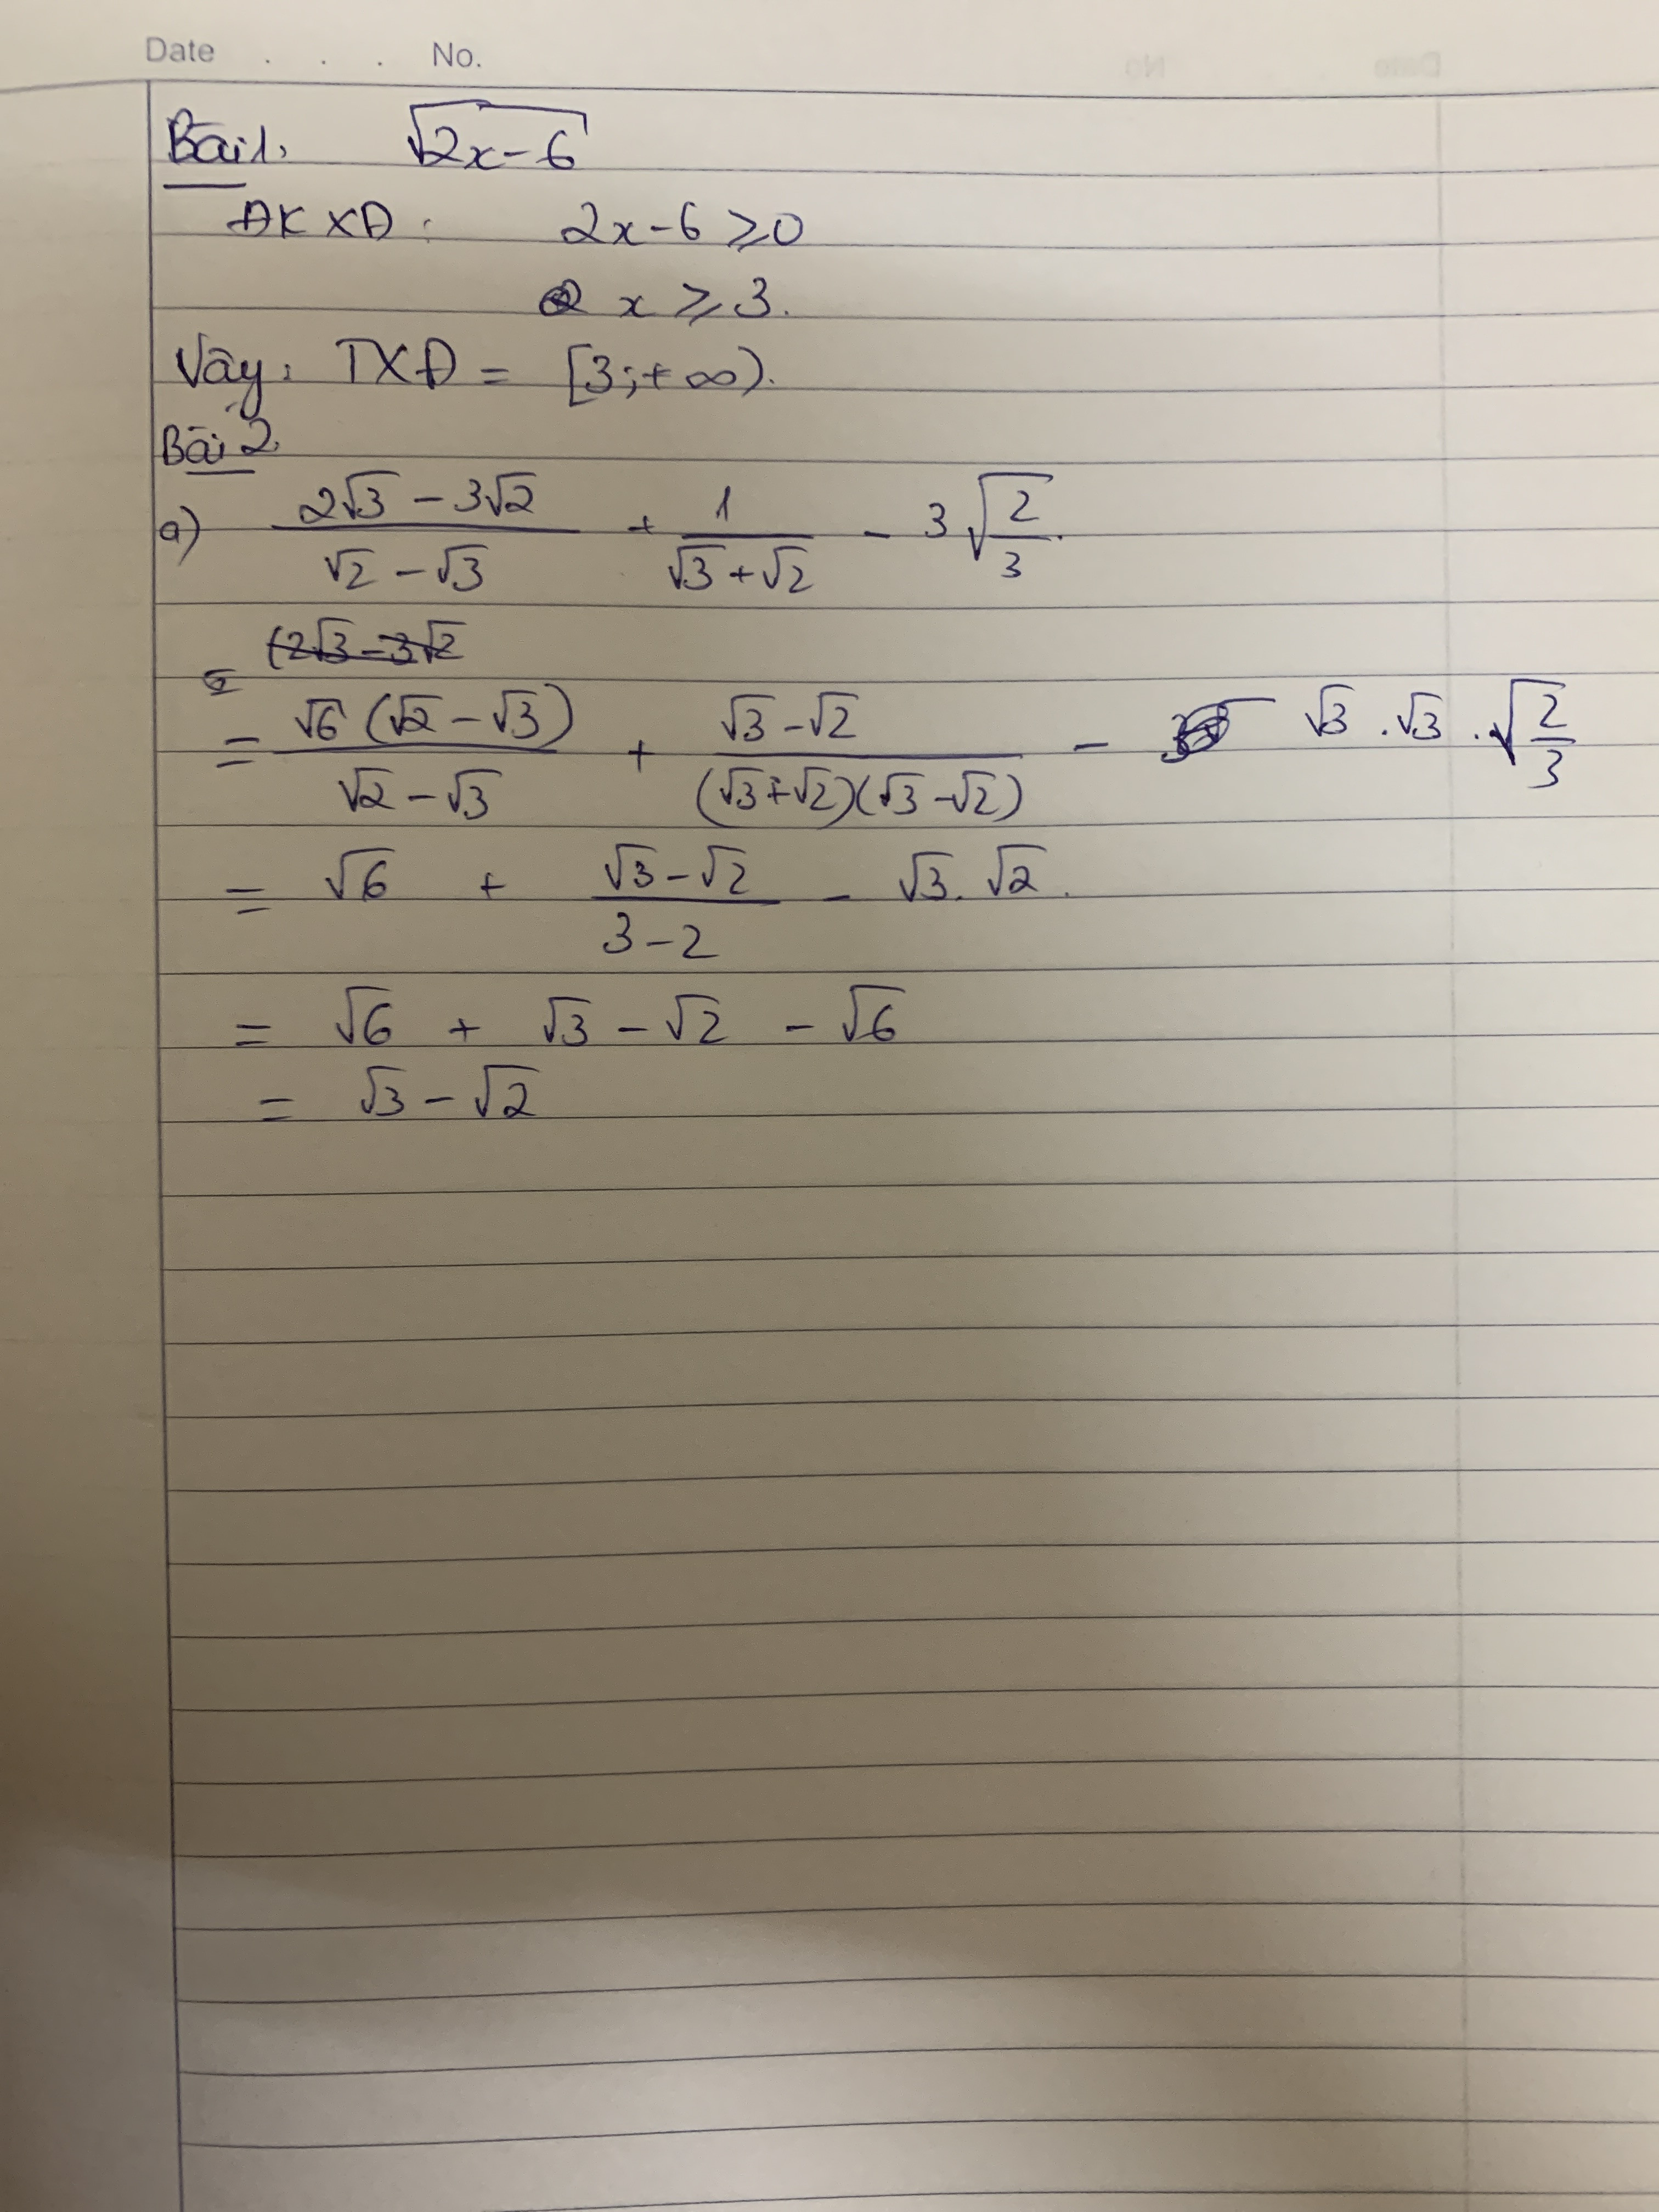 Date . . . No.
Bài 1. √(2x-6)
ĐKXĐ: 2x-6 ≥ 0
x ≥ 3.
Vậy: TXĐ = [3;+∞).
Bài 2.
a) (2√3 - 3√2)/(√2 - √3) + 1/(√3+√2) - 3√(2/3).
= (2√3 - 3√2
= √6(√2 - √3)/(√2 - √3) + (√3 - √2)/((√3+√2)(√3-√2)) - √3 . √3 . √(2/3)
= √6 + (√3-√2)/(3-2) - √3. √2.
= √6 + √3 - √2 - √6
= √3 - √2